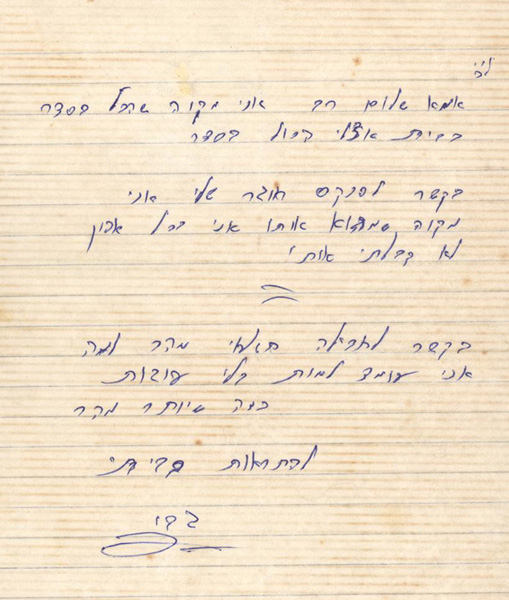 אמא שלום רב אני מקוה שהכל בסדר
בבית אצלי הכול בסדר
בקשר לפנקס חוגר שלי אני
מקוה שתמצא אותו אני בכל אופן
לא קבלתי אותו
בקשר לחבילה תשלחי מהר למה
אני עומד למות בלי עוגות
כמה שיותר מהר
להתראות
גדי